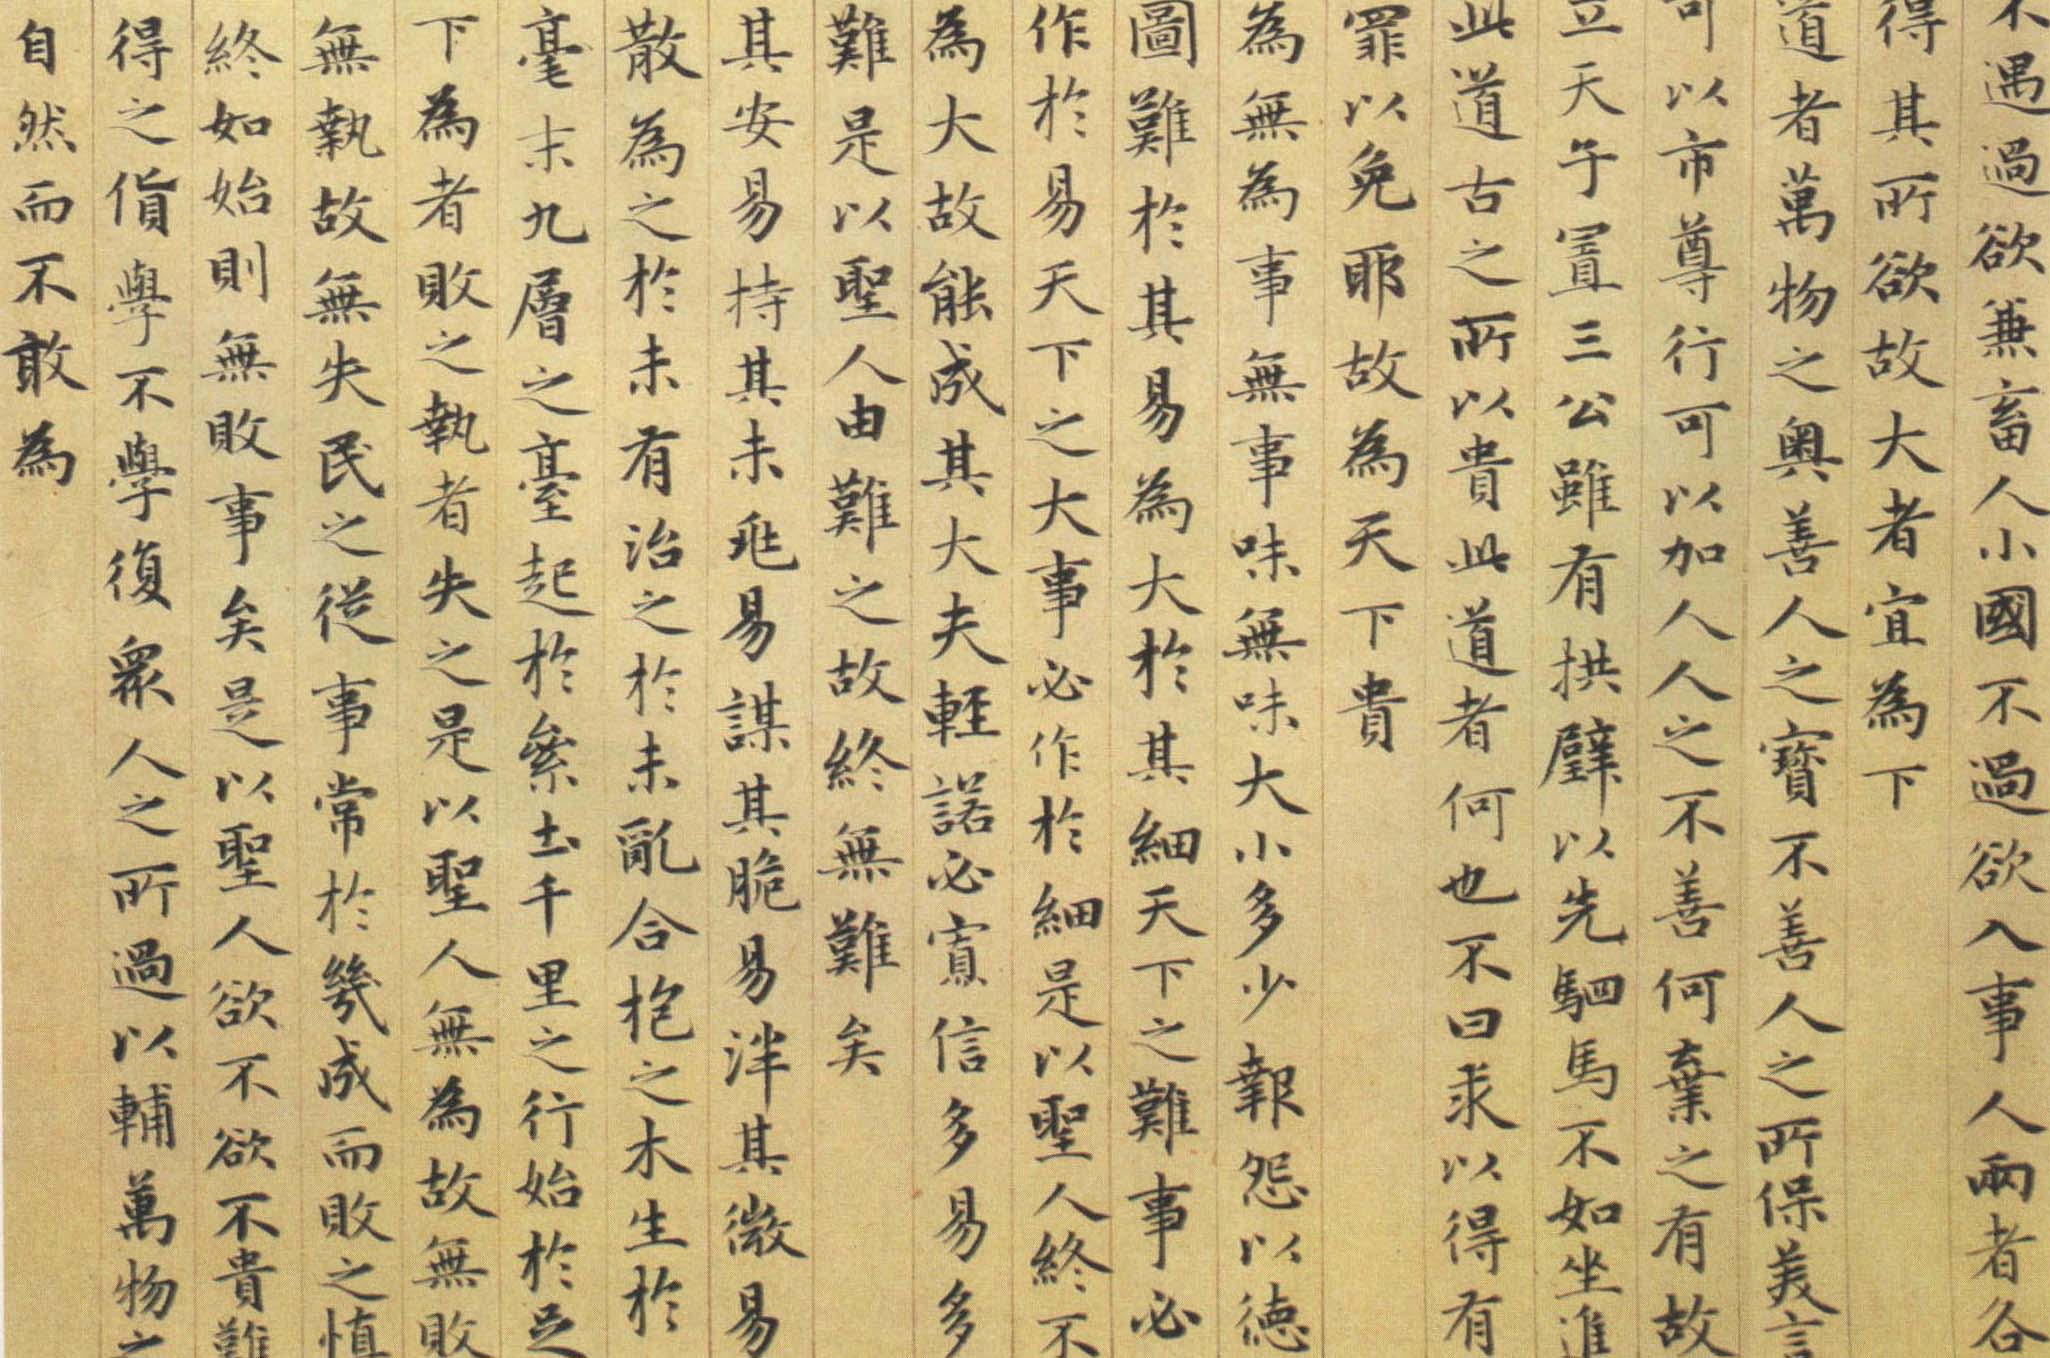 不過欲兼畜人小國不過欲入事人兩者各
得其所欲故大者宜為下
道者萬物之奧善人之寶不善人之所保美言
可以市尊行可以加人人之不善何棄之有故
立天子置三公雖有拱璧以先駟馬不如坐進
此道古之所以貴此道者何也不曰求以得有
罪以免耶故為天下貴
為無為事無事味無味大小多少報怨以德
圖難於其易為大於其細天下之難事必
作於易天下之大事必作於細是以聖人終不
為大故能成其大夫輕諾必寡信多易多
難是以聖人由難之故終無難矣
其安易持其未兆易謀其脆易泮其微易
散為之於未有治之於未亂合抱之木生於
毫末九層之臺起於絫土千里之行始於足
下為者敗之執者失之是以聖人無為故無敗
無執故無失民之從事常於幾成而敗之慎
終如始則無敗事矣是以聖人欲不欲不貴難
得之貨學不學復眾人之所過以輔萬物之
自然而不敢為